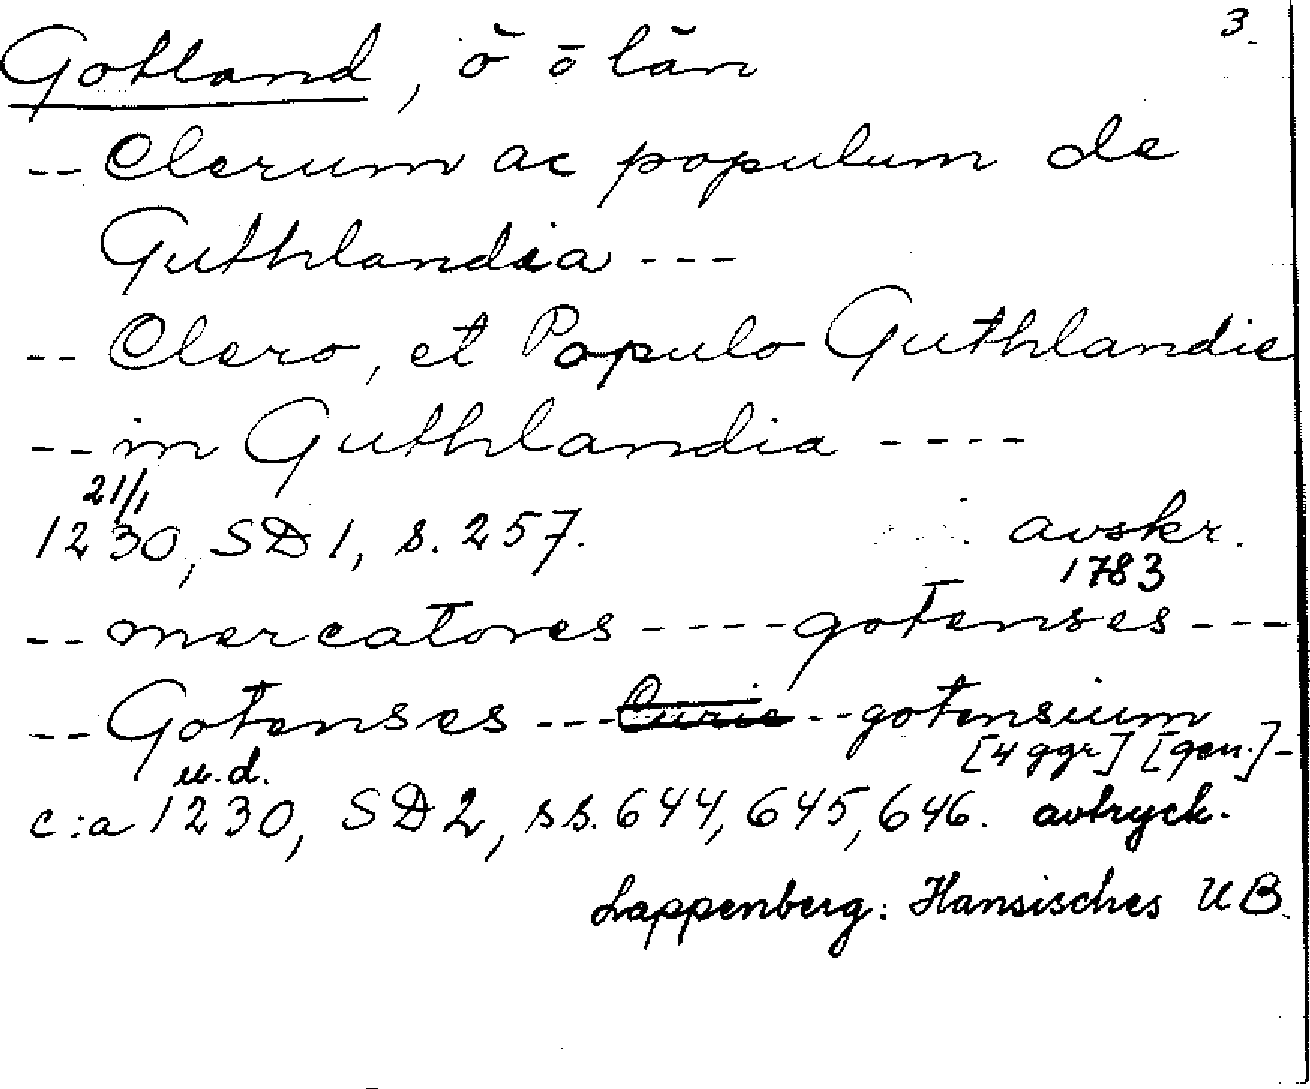 3.
Gotland, ö ö län
-- Clerum ac populum de
Guthlandia ---
-- Clero, et Populo Guthlandie
-- in Guthlandia ----
21/1
1230, SD 1, s. 257. avskr.
1783
-- mercatores ---- gotenses ---
-- Gotenses --- Curie -- gotensium
u.d. [4 ggr.] [gen.] -
c:a 1230, SD 2, ss. 644, 645, 646. avtryck.
Lappenberg: Hansisches UB.